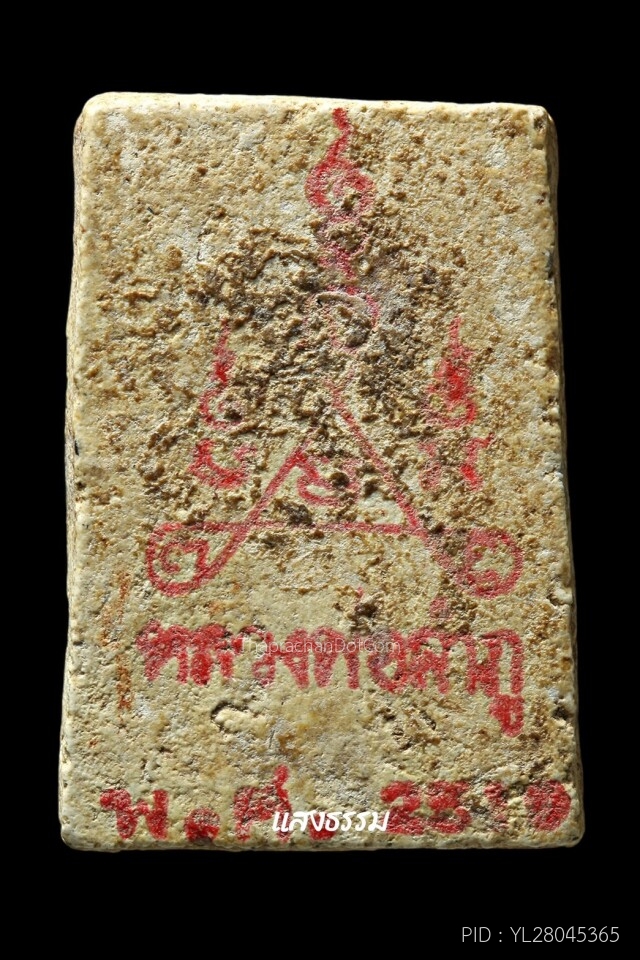 ThaprachanDotCom
หลวงพ่อลำภู
พ.ศ. 2510
แสงธรรม
PID : YL28045365